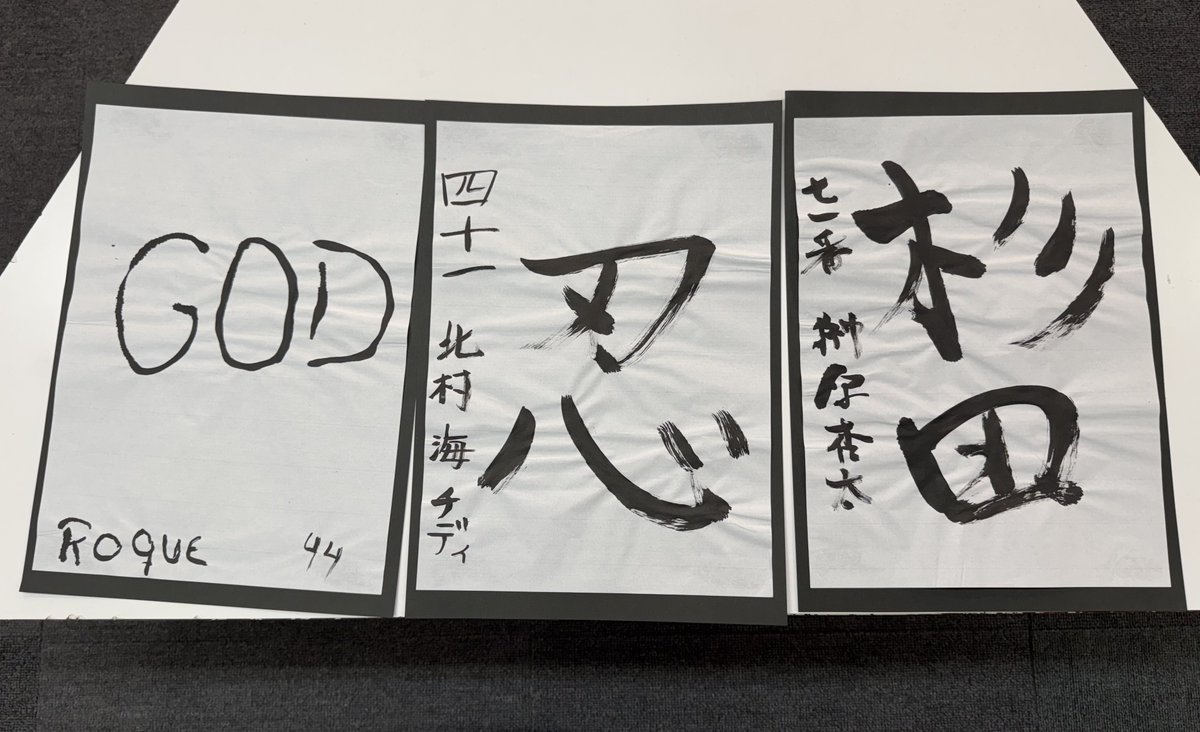 GOD
ROQUE 44
忍
四十一 北村海チディ
杉田
七一番 榊原杏太